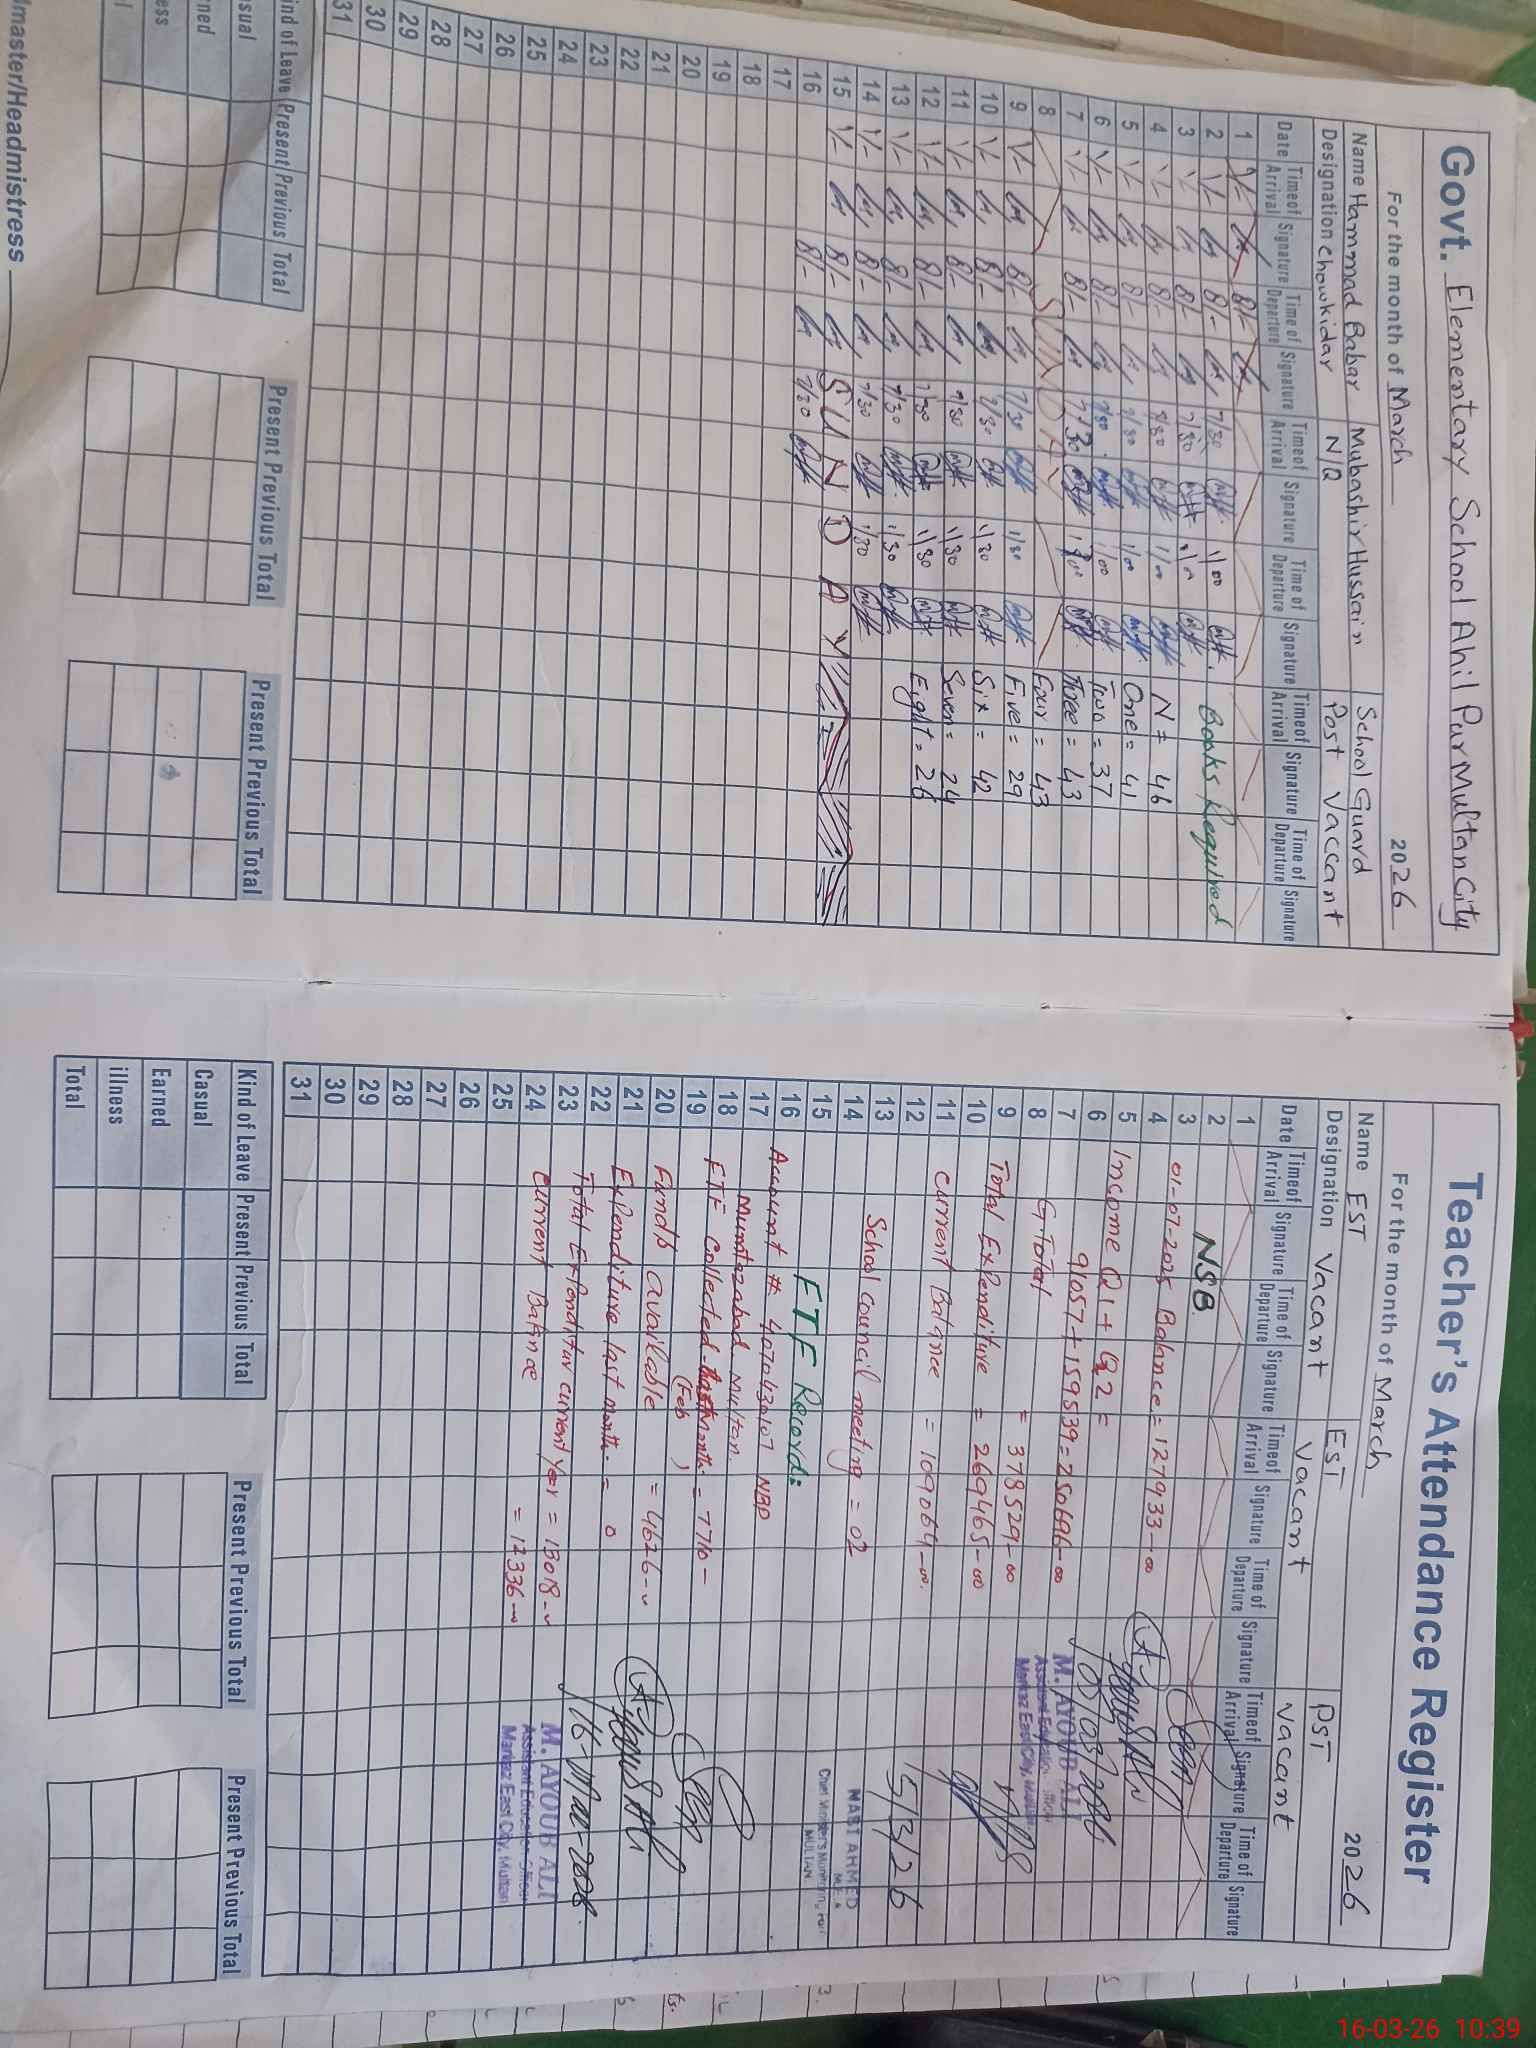 Govt. Elementary School Ahil Pur Multan City
For the month of March 2026
Name Hammad Babar Mubashir Hussain School Guard
Designation chowkidar N/Q Post Vaccant
Date Time of Arrival Signature Time of Departure Signature Time of Arrival Signature Time of Departure Signature Time of Arrival Signature Time of Departure Signature
1 1/- 8/-
2 1/- 8/- 7/30 1/00 Books Required
3 1/- 8/- 7/30 1/00
4 1/- 8/- 7/30 1/00 N = 46
5 1/- 8/- 7/30 1/00 One = 41
6 1/- 8/- 7/30 1/00 Two = 37
7 1/- 8/- 7/30 1/00 Three = 43
8 SUNDAY Four = 43
9 1/- 8/- 7/30 1/30 Five = 29
10 1/- 8/- 7/30 1/30 Six = 42
11 1/- 8/- 7/30 1/30 Seven = 24
12 1/- 8/- 7/30 1/30 Eight = 26
13 1/- 8/- 7/30 1/30
14 1/- 8/- 7/30 1/30
15 1/- 8/- SUNDAY
16 8/- 7/30
17
18
19
20
21
22
23
24
25
26
27
28
29
30
31
ind of Leave Present Previous Total Present Previous Total Present Previous Total
sual
ned
ess
l
dmaster/Headmistress
Teacher's Attendance Register
For the month of March 2026
Name EST EST PST
Designation Vacant Vacant Vacant
Date Time of Arrival Signature Time of Departure Signature Time of Arrival Signature Time of Departure Signature Time of Arrival Signature Time of Departure Signature
1
2 NSB.
3 01-07-2025 Balance = 127933-00
4
5 Income Q1 + Q2 =
6 91057 + 159539 = 250696-00
7
8 G.Total = 378529-00
9 Total Expenditure = 269465-00
10
11 Current Balance = 109064-00.
12
13 School council meeting = 02
14
15 FTF Record:
16 Account # 4070430107 NBP
17 Mumtazabad Multan.
18 FTF Collected Month = 7710-
19 (Feb)
20 Funds available = 4626-
21 Expenditure last month = 0
22 Total Expenditur current year = 13018-
23 Current Balance = 12336-
24
25
26
27
28
29
30
31
Seen
07/03/2026
M. AYOUB ALI
Assistant Education Officer
Markaz East City, Multan
15/3/26
NABI AHMED
M.E.A
MULTAN
Seen
16-Mar-2026
M. AYOUB ALI
Assistant Education Officer
Markaz East City, Multan
Kind of Leave Present Previous Total Present Previous Total Present Previous Total
Casual
Earned
illness
Total
16-03-26 10:39